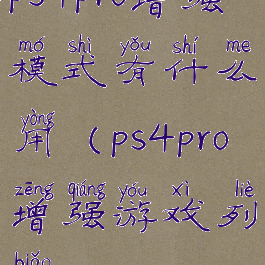 ps4pro增强
mó shì yǒu shí me
模式有什么
yòng
用（ps4pro
zēng qiáng yóu xì liè
增强游戏列
biǎo